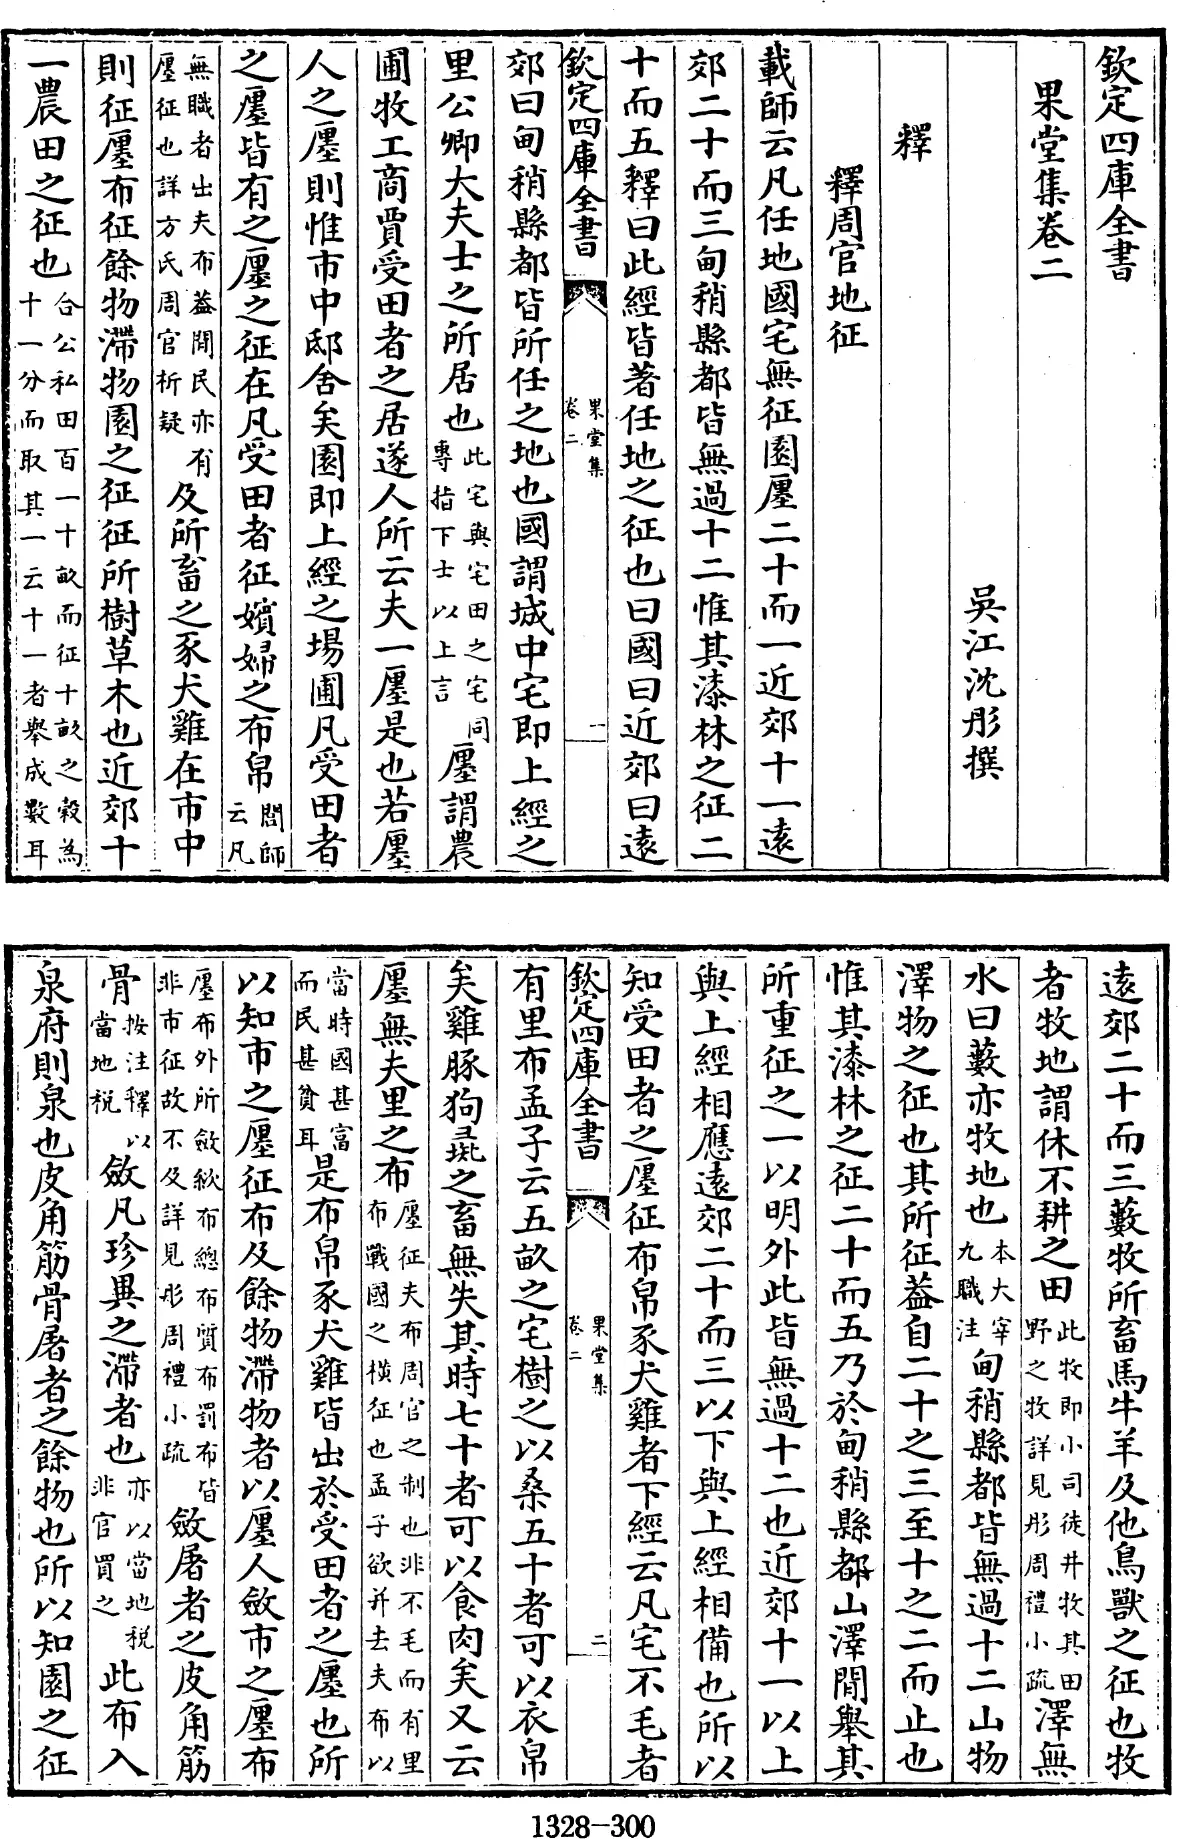 欽定四庫全書
果堂集卷二
吳江沈彤撰
釋
釋周官地征
載師云凡任地國宅無征園廛二十而一近郊十一遠
郊二十而三甸稍縣都皆無過十二惟其漆林之征二
十而五釋曰此經皆著任地之征也曰國曰近郊曰遠
欽定四庫全書
果堂集
卷二
一
郊曰甸稍縣都皆所任之地也國謂城中宅即上經之
里公卿大夫士之所居也此宅與宅田之宅同專指下士以上言廛謂農
圃牧工商賈受田者之居遂人所云夫一廛是也若廛
人之廛則惟市中邸舍矣園即上經之場圃凡受田者
之廛皆有之廛之征在凡受田者征嬪婦之布帛閭師云凡
無職者出夫布葢閒民亦有廛征也詳方氏周官析疑及所畜之豕犬雞在市中
則征廛布征餘物滯物園之征征所樹草木也近郊十
一農田之征也合公私田百一十畝而征十畝之穀為十一分而取其一云十一者舉成數耳
遠郊二十而三藪牧所畜馬牛羊及他鳥獸之征也牧
者牧地謂休不耕之田此牧即小司徒井牧其田野之牧詳見彤周禮小疏澤無
水曰藪亦牧地也本大宰九職注甸稍縣都皆無過十二山物
澤物之征也其所征葢自二十之三至十之二而止也
惟其漆林之征二十而五乃於甸稍縣都山澤閒舉其
所重征之一以明外此皆無過十二也近郊十一以上
與上經相應遠郊二十而三以下與上經相備也所以
知受田者之廛征布帛豕犬雞者下經云凡宅不毛者
欽定四庫全書
果堂集
卷二
二
有里布孟子云五畝之宅樹之以桑五十者可以衣帛
矣雞豚狗彘之畜無失其時七十者可以食肉矣又云
廛無夫里之布廛征夫布周官之制也非不毛而有里布戰國之橫征也孟子欲并去夫布以
當時國甚富而民甚貧耳是布帛豕犬雞皆出於受田者之廛也所
以知市之廛征布及餘物滯物者以廛人斂市之廛布
廛布外所斂絘布總布質布罰布皆非市征故不及詳見彤周禮小疏斂屠者之皮角筋
骨按注釋以當地稅斂凡珍異之滯者也亦以當地稅非官買之此布入
泉府則泉也皮角筋骨屠者之餘物也所以知園之征
1328-300